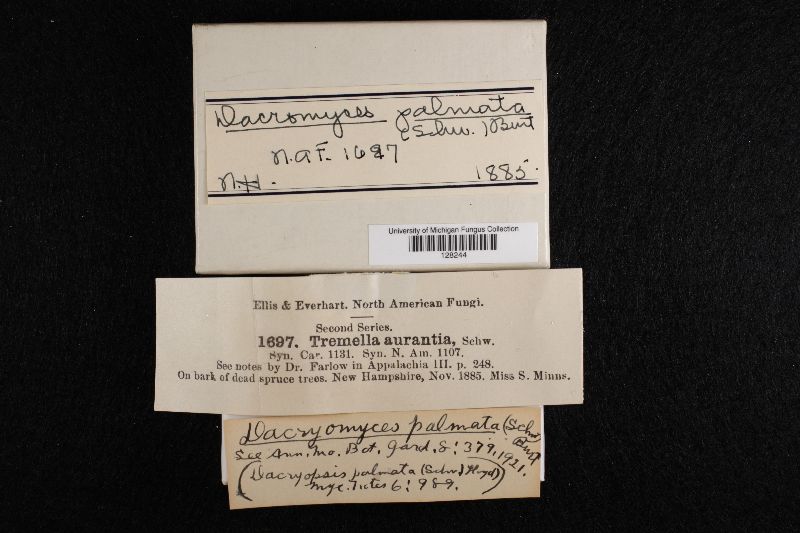 Dacromyces palmata
(Schw.) Burt
N.A.F. 1697
N.H. 1885.
University of Michigan Fungus Collection
128244
Ellis & Everhart. North American Fungi.
Second Series.
1697. Tremella aurantia, Schw.
Syn. Car. 1131. Syn. N. Am. 1107.
See notes by Dr. Farlow in Appalachia III. p. 248.
On bark of dead spruce trees. New Hampshire, Nov. 1885. Miss S. Minns.
Dacryomyces palmata (Schw) Burt
See Ann. Mo. Bot. Gard. 8: 379, 1921.
(Dacryopsis palmata (Schw) Lloyd)
Myc. Notes 6: 989.)